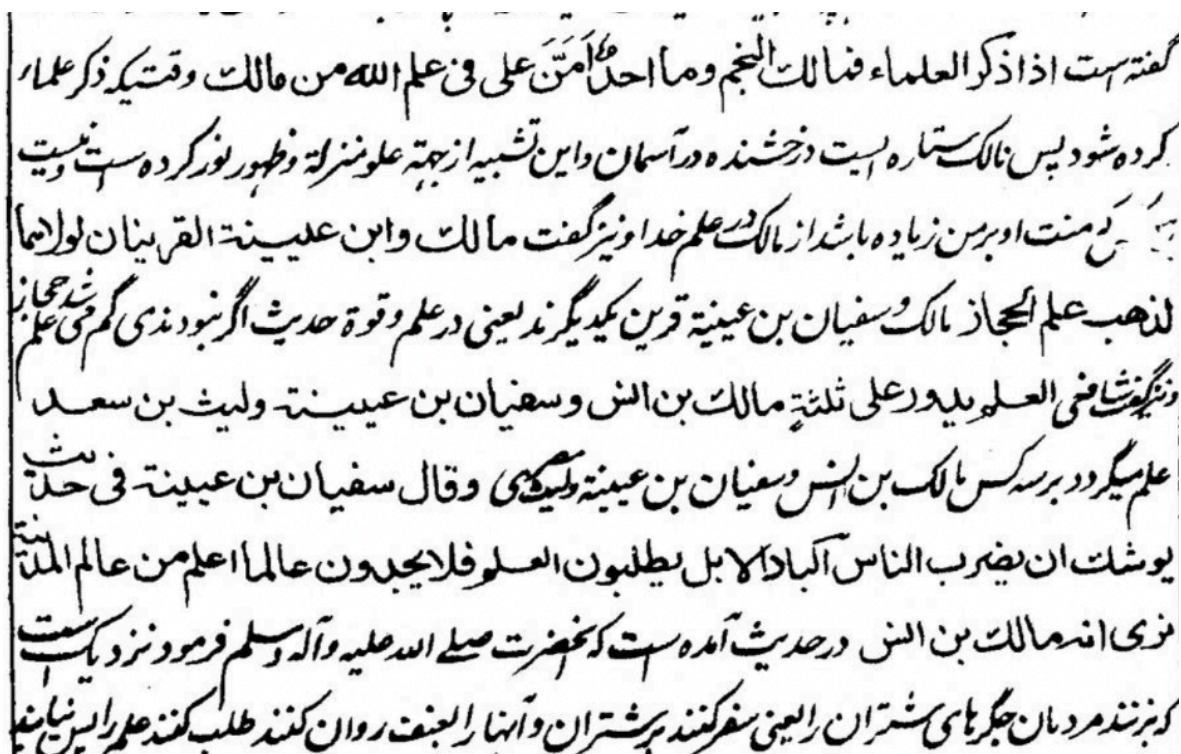 گفته است اذا ذکر العلماء فمالك النجم وما احد اَمَنَّ علی فی علم الله من مالك وقتیکه ذکر علماء
کرده شود پس مالک ستاره ایست درخشنده در آسمان واین تشبیه از جهة علو منزلة وظهور نور کرده است ونیست
منت او بر من زیاده باشد از مالک در علم خدا ونیز گفت مالك وابن عیینة القرینان لولاهما
لذهب علم الحجاز مالک وسفیان بن عیینة قرین یکدیگرند یعنی در علم وقوة حدیث اگر نبودندی گم می شد علم حجاز
ونیز گفت شافعی العلم یدور علی ثلثةٍ مالك بن انس وسفیان بن عیینة ولیث بن سعد
علم میگردد بر سه کس مالک بن انس وسفیان بن عیینة وقال سفیان بن عیینة فی حدیث
یوشك ان یضرب الناس اکباد الابل یطلبون العلم فلا یجدون عالما اعلم من عالم المدینة
نری انه مالك بن انس در حدیث آمده است که آنحضرت صلے الله علیه وآله وسلم فرمود نزدیک است
که بزنند مردمان جگرهای شتران را یعنی سفر کنند بر شتران وآنها را بعنف روان کنند طلب کنند علم را پس نیابند